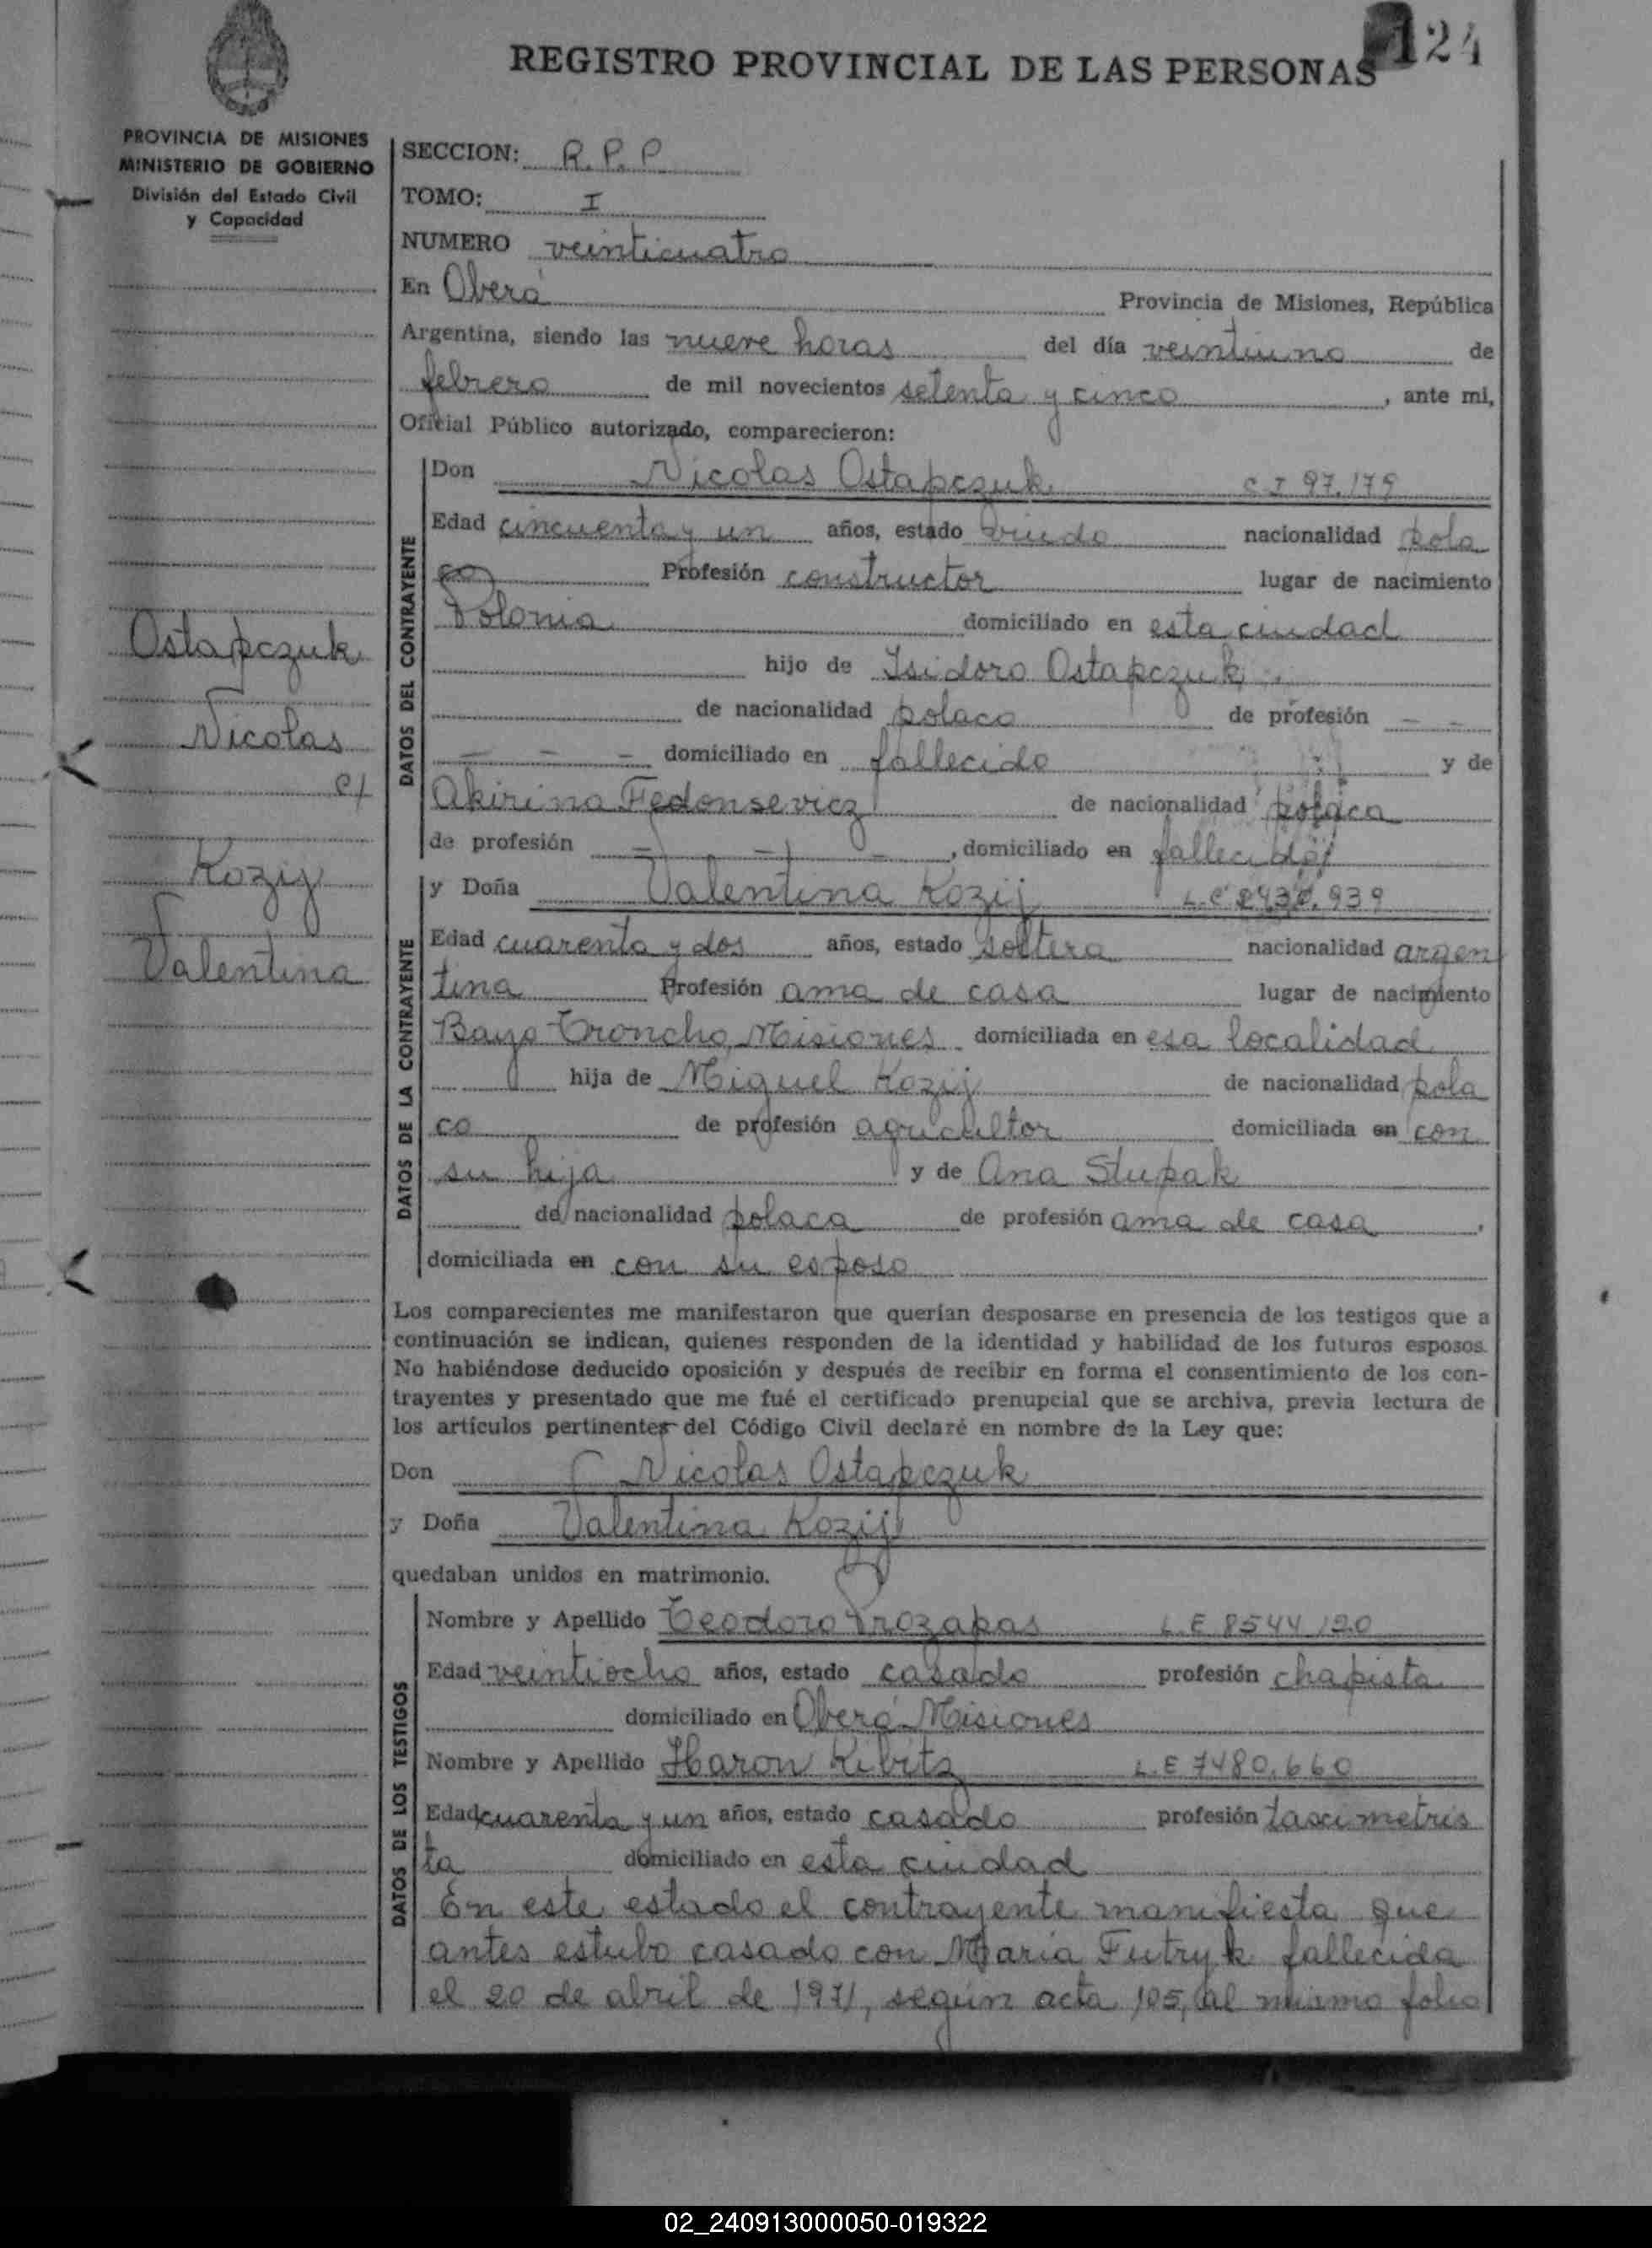 124
REGISTRO PROVINCIAL DE LAS PERSONAS
PROVINCIA DE MISIONES
MINISTERIO DE GOBIERNO
División del Estado Civil
y Capacidad
SECCION: R.P.P
TOMO: I
NUMERO veinticuatro
En Oberá Provincia de Misiones, República
Argentina, siendo las nueve horas del día veintiuno de
febrero de mil novecientos setenta y cinco, ante mi,
Oficial Público autorizado, comparecieron:
DATOS DEL CONTRAYENTE
Don Nicolas Ostapczuk C I 97.179
Edad cincuenta y un años, estado viudo nacionalidad pola
co Profesión constructor lugar de nacimiento
Polonia domiciliado en esta ciudad
hijo de Isidoro Ostapczuk
de nacionalidad polaco de profesión — —
— — — domiciliado en fallecido y de
Akirina Fedonsevicz de nacionalidad polaca
de profesión — — —, domiciliado en
Ostapczuk
Nicolas
c/
Kozij
Valentina
DATOS DE LA CONTRAYENTE
y Doña Valentina Kozij L.C .939
Edad cuarenta y dos años, estado soltera nacionalidad argen
tina Profesión ama de casa lugar de nacimiento
Bayo Troncho, Misiones domiciliada en esa localidad
hija de Miguel Kozij de nacionalidad pola
co de profesión agricultor domiciliada en con
su hija y de Ana Stupak
de nacionalidad polaca de profesión ama de casa,
domiciliada en con su esposo
Los comparecientes me manifestaron que querían desposarse en presencia de los testigos que a
continuación se indican, quienes responden de la identidad y habilidad de los futuros esposos.
No habiéndose deducido oposición y después de recibir en forma el consentimiento de los con-
trayentes y presentado que me fué el certificado prenupcial que se archiva, previa lectura de
los artículos pertinentes del Código Civil declaré en nombre de la Ley que:
Don Nicolas Ostapczuk
y Doña Valentina Kozij
quedaban unidos en matrimonio.
DATOS DE LOS TESTIGOS
Nombre y Apellido Teodoro Prozapas L.E 8544 120
Edad veintiocho años, estado casado profesión chapista
domiciliado en Oberá Misiones
Nombre y Apellido Haron Kibitz L.E 7480.660
Edad cuarenta y un años, estado casado profesión taximetris
ta domiciliado en esta ciudad
En este estado el contrayente manifiesta que
antes estubo casado con Maria Futryk fallecida
el 20 de abril de 1971, según acta 105, al mismo folio
02_240913000050-019322